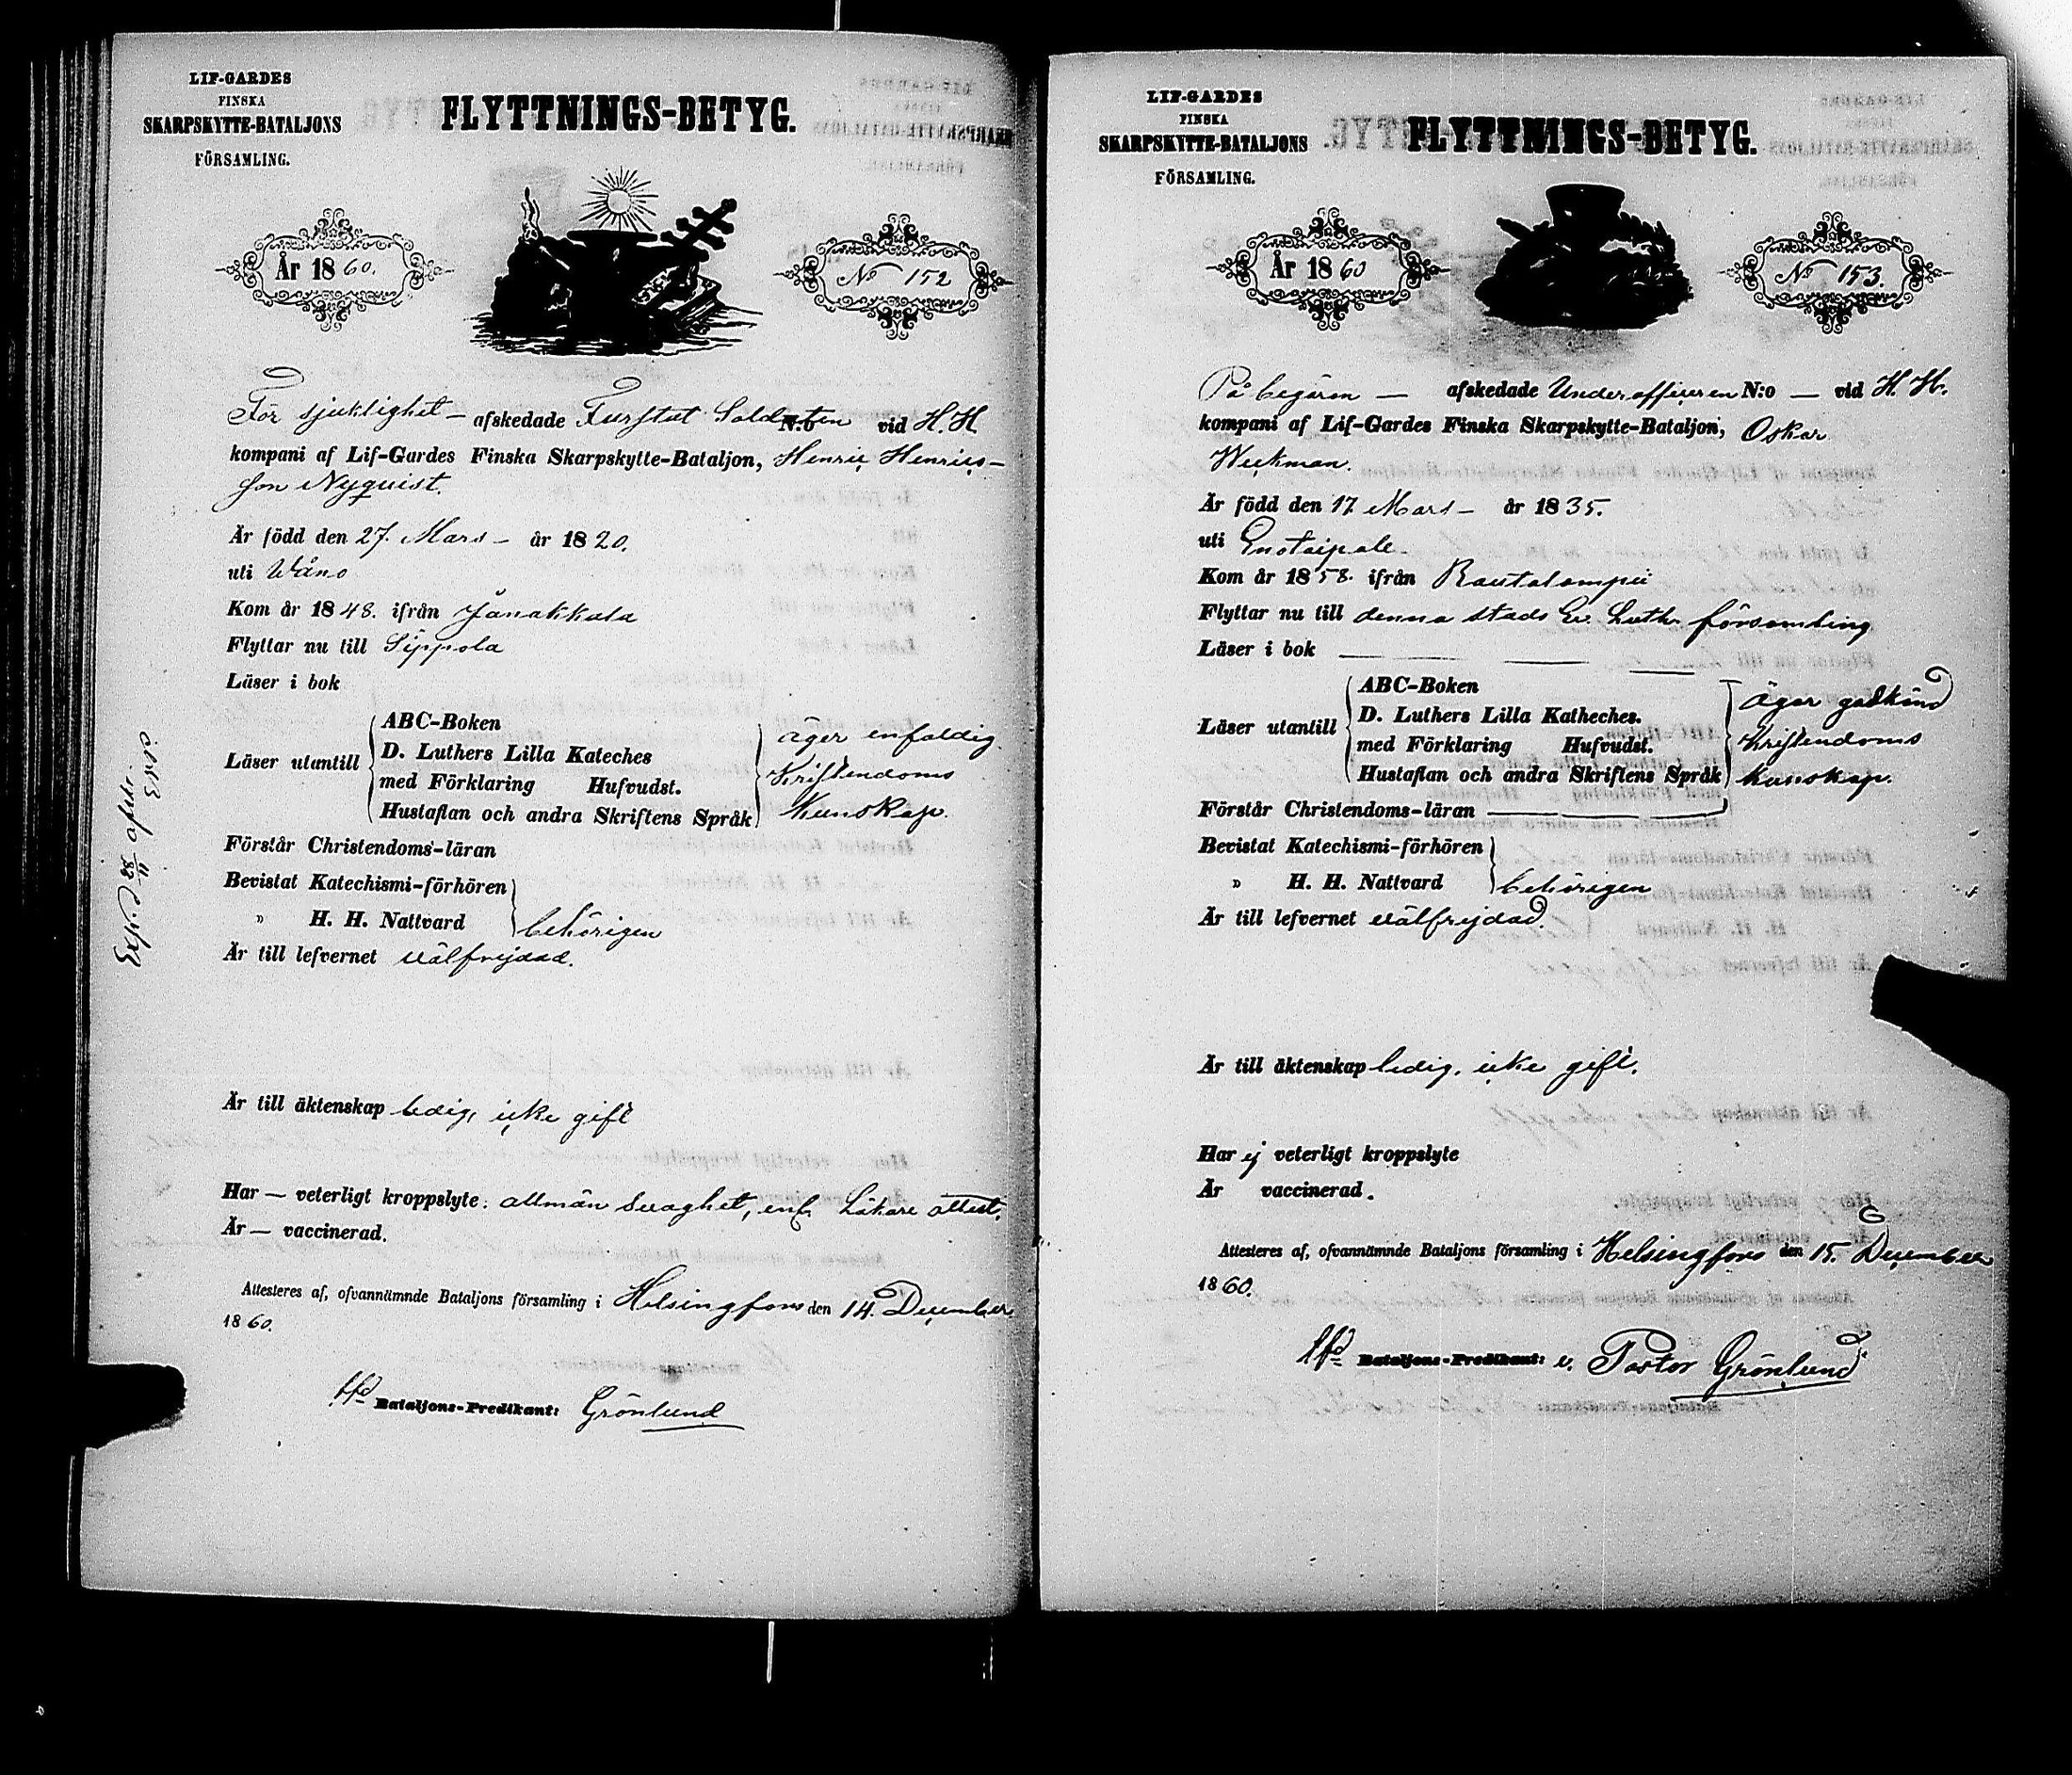 LIF-GARDES
FINSKA
SKARPSKYTTE-BATALJONS
FÖRSAMLING.
FLYTTNINGS-BETYG.
År 1860.
No 152
För sjuklighet – afskedade Furstat Soldaten vid H. H
kompani af Lif-Gardes Finska Skarpskytte-Bataljon, Henric Henrics-
son Nyquist.
Är född den 27. Mars – år 1820.
uti Wåno
Kom år 1848. ifrån Janakkala
Flyttar nu till Sippola
Läser i bok
Läser utantill
ABC-Boken
D. Luthers Lilla Kateches
med Förklaring Hufvudst.
Hustaflan och andra Skriftens Språk
äger enfaldig
Kristendoms
Kunskap.
Förstår Christendoms-läran
Bevistat Katechismi-förhören
» H. H. Nattvard
behörigen
Är till lefvernet välfrejdad.
Är till äktenskap ledig, icke gift
Har – veterligt kroppslyte: allmän svaghet, enl. Läkare attest.
Är – vaccinerad.
Attesteras af, ofvannämnde Bataljons församling i Helsingfors den 14. December
1860.
Bataljons-Predikant: Grönlund
LIF-GARDES
FINSKA
SKARPSKYTTE-BATALJONS
FÖRSAMLING.
FLYTTNINGS-BETYG.
År 1860
No 153.
På begäran – afskedade Underofficeren N:o – vid H. H.
kompani af Lif-Gardes Finska Skarpskytte-Bataljon, Oskar
Weckman.
Är född den 17 Mars – år 1835.
uti
Kom år 1858. ifrån Rautalampi
Flyttar nu till denna stads Ev. Luth. församling
Läser i bok
Läser utantill
ABC-Boken
D. Luthers Lilla Katheches.
med Förklaring Hufvudst.
Hustaflan och andra Skriftens Språk
äger godkänd
Kristendoms
kunskap.
Förstår Christendoms-läran
Bevistat Katechismi-förhören
» H. H. Nattvard
behörigen
Är till lefvernet välfrejdad.
Är till äktenskap ledig, icke gift.
Har ej veterligt kroppslyte
Är vaccinerad.
Attesteras af, ofvannämnde Bataljons församling i Helsingfors den 15. December
1860.
Bataljons-Predikant: v. Pastor Grönlund